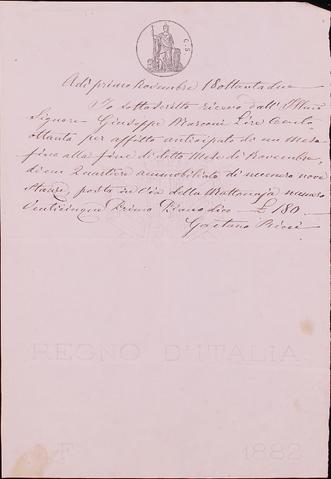 C. S.
Adì primo Novembre 18ottantadue
Io sottoscritto ricevo dall' Illmo
Signore Giuseppe Marconi Lire Cento
ottanta per affitto anticipato di un Mese
fino alla fine di detto Mese di Novembre,
di un Quartiere ammobiliato di numero nove
Stanze, posto in Via della Mattonaja numero
Venticinque Primo Piano dico — £ 180
Gaetano
REGNO D'ITALIA
F 1882